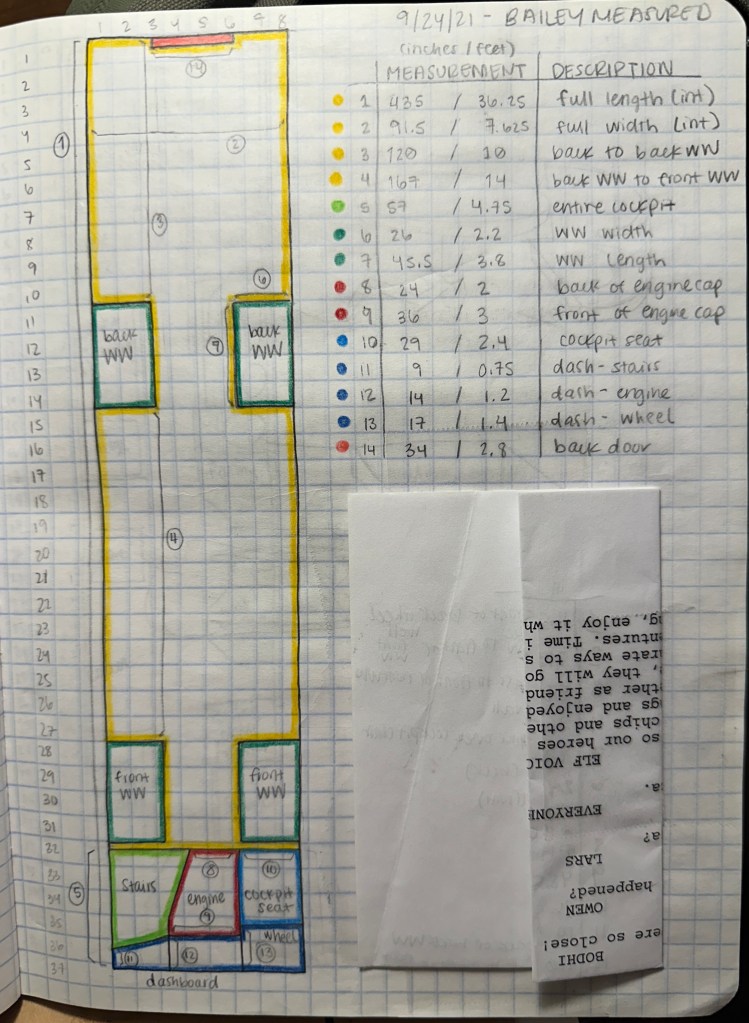 9/24/21 - BAILEY MEASURED
(inches / feet)
MEASUREMENT DESCRIPTION
1 435 / 36.25 full length (int)
2 91.5 / 7.625 full width (int)
3 120 / 10 back to back WW
4 167 / 14 back WW to front WW
5 57 / 4.75 entire cockpit
6 26 / 2.2 WW width
7 45.5 / 3.8 WW length
8 24 / 2 back of engine cap
9 36 / 3 front of engine cap
10 29 / 2.4 cockpit seat
11 9 / 0.75 dash - stairs
12 14 / 1.2 dash - engine
13 17 / 1.4 dash - wheel
14 34 / 2.8 back door
1 2 3 4 5 6 7 8
1
2
3
4
5
6
7
8
9
10
11
12
13
14
15
16
17
18
19
20
21
22
23
24
25
26
27
28
29
30
31
32
33
34
35
36
37
14
1
2
3
6
back WW
7
back WW
4
front WW
front WW
5
stairs
8
engine
9
10
cockpit seat
wheel
11
12
13
dashboard
BODHI
ere so close!
OWEN
happened?
LARS
a?
EVERYONE
a.
ELF VOIC
so our heroes
chips and othe
gs and enjoyed
ther as friend
, they will go
arate ways to s
ntures. Time i
g, enjoy it wh